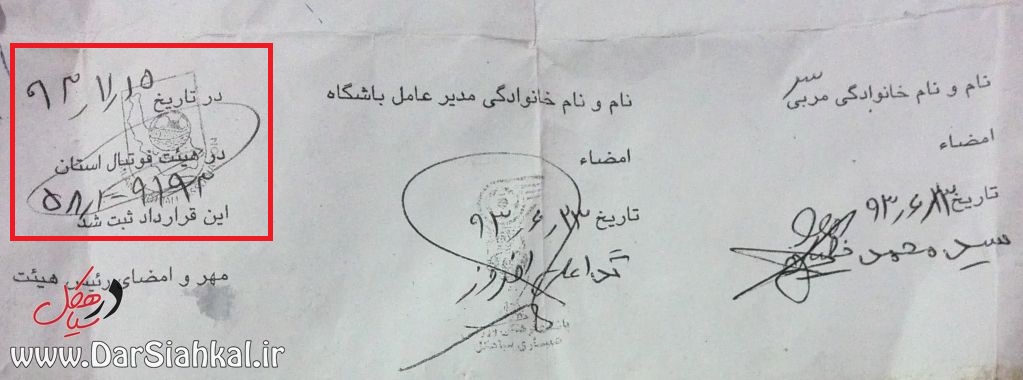 نام و نام خانوادگی مربی
امضاء
تاریخ ۹۳٫۶٫۲۳
سید محمد
نام و نام خانوادگی مدیر عامل باشگاه
امضاء
تاریخ ۹۳٫۶٫۲۳
افروز
در تاریخ ۹۳٫۷٫۱۵
در هیئت فوتبال استان
این قرارداد ثبت شد
مهر و امضای رئیس هیئت
در سیاهکل
www.DarSiahkal.ir